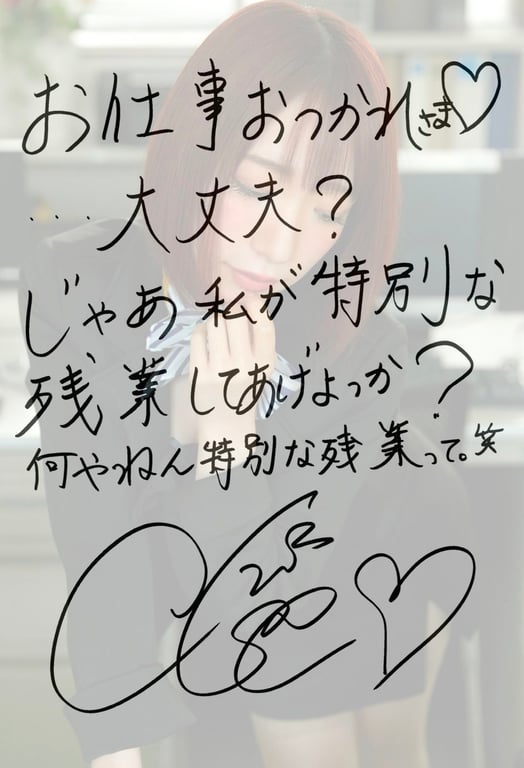 お仕事おつかれさま♡
....大丈夫?
じゃあ私が特別な
残業してあげよっか?
何やねん特別な残業って。笑